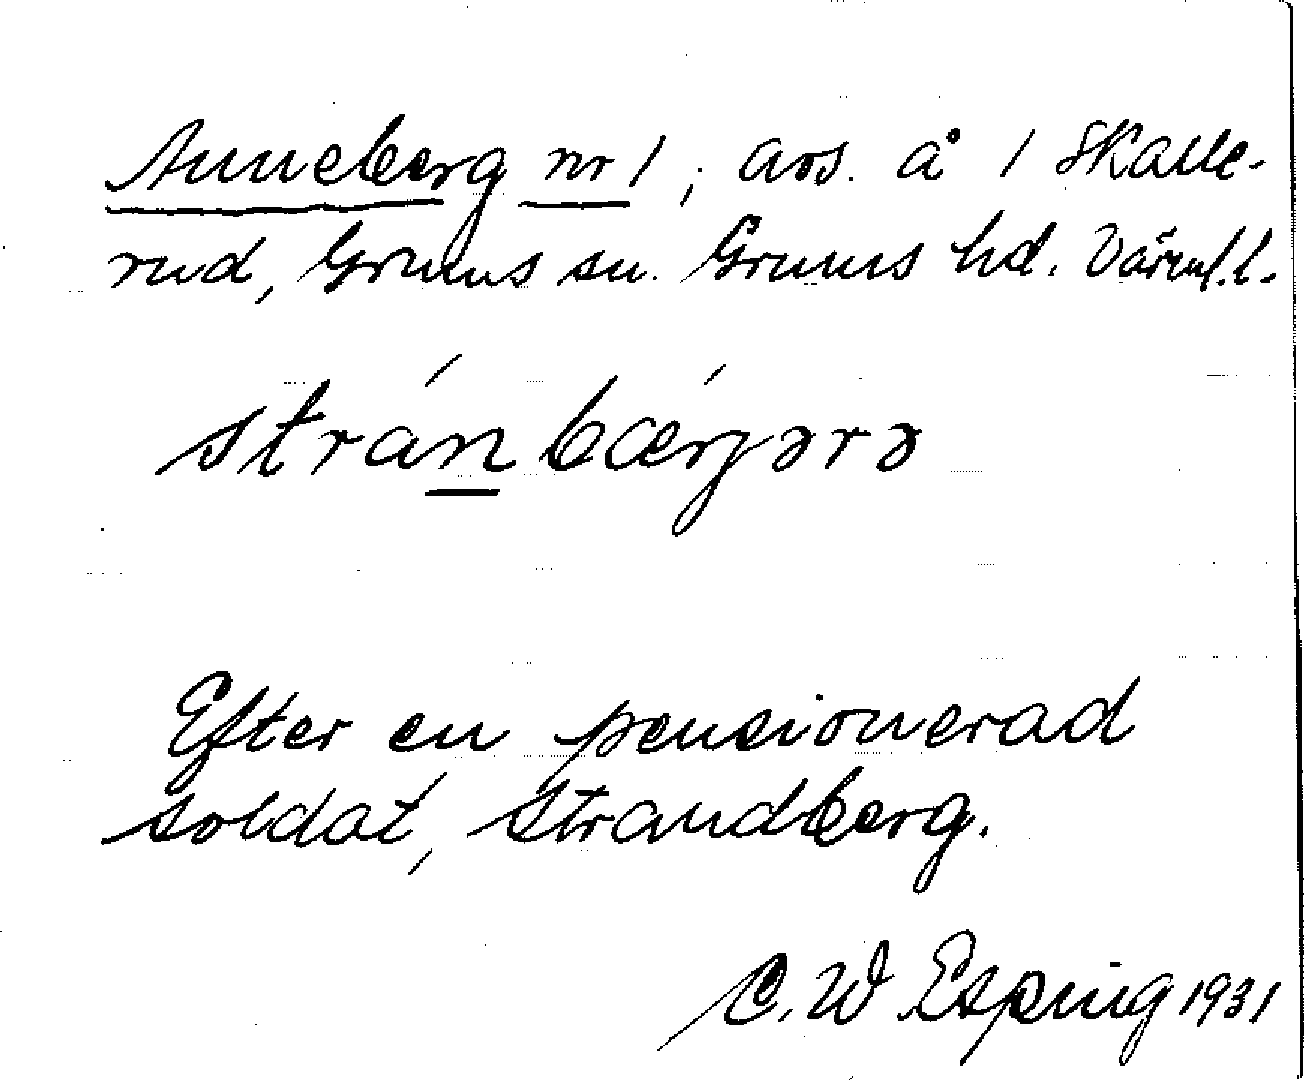 Anneberg nr 1, avs. å 1 Skalle-
rud, Grums sn. Grums hd. Värml.l.
stránbǽrjərə
Efter en pensionerad
soldat, Strandberg.
C. W Esping 1931